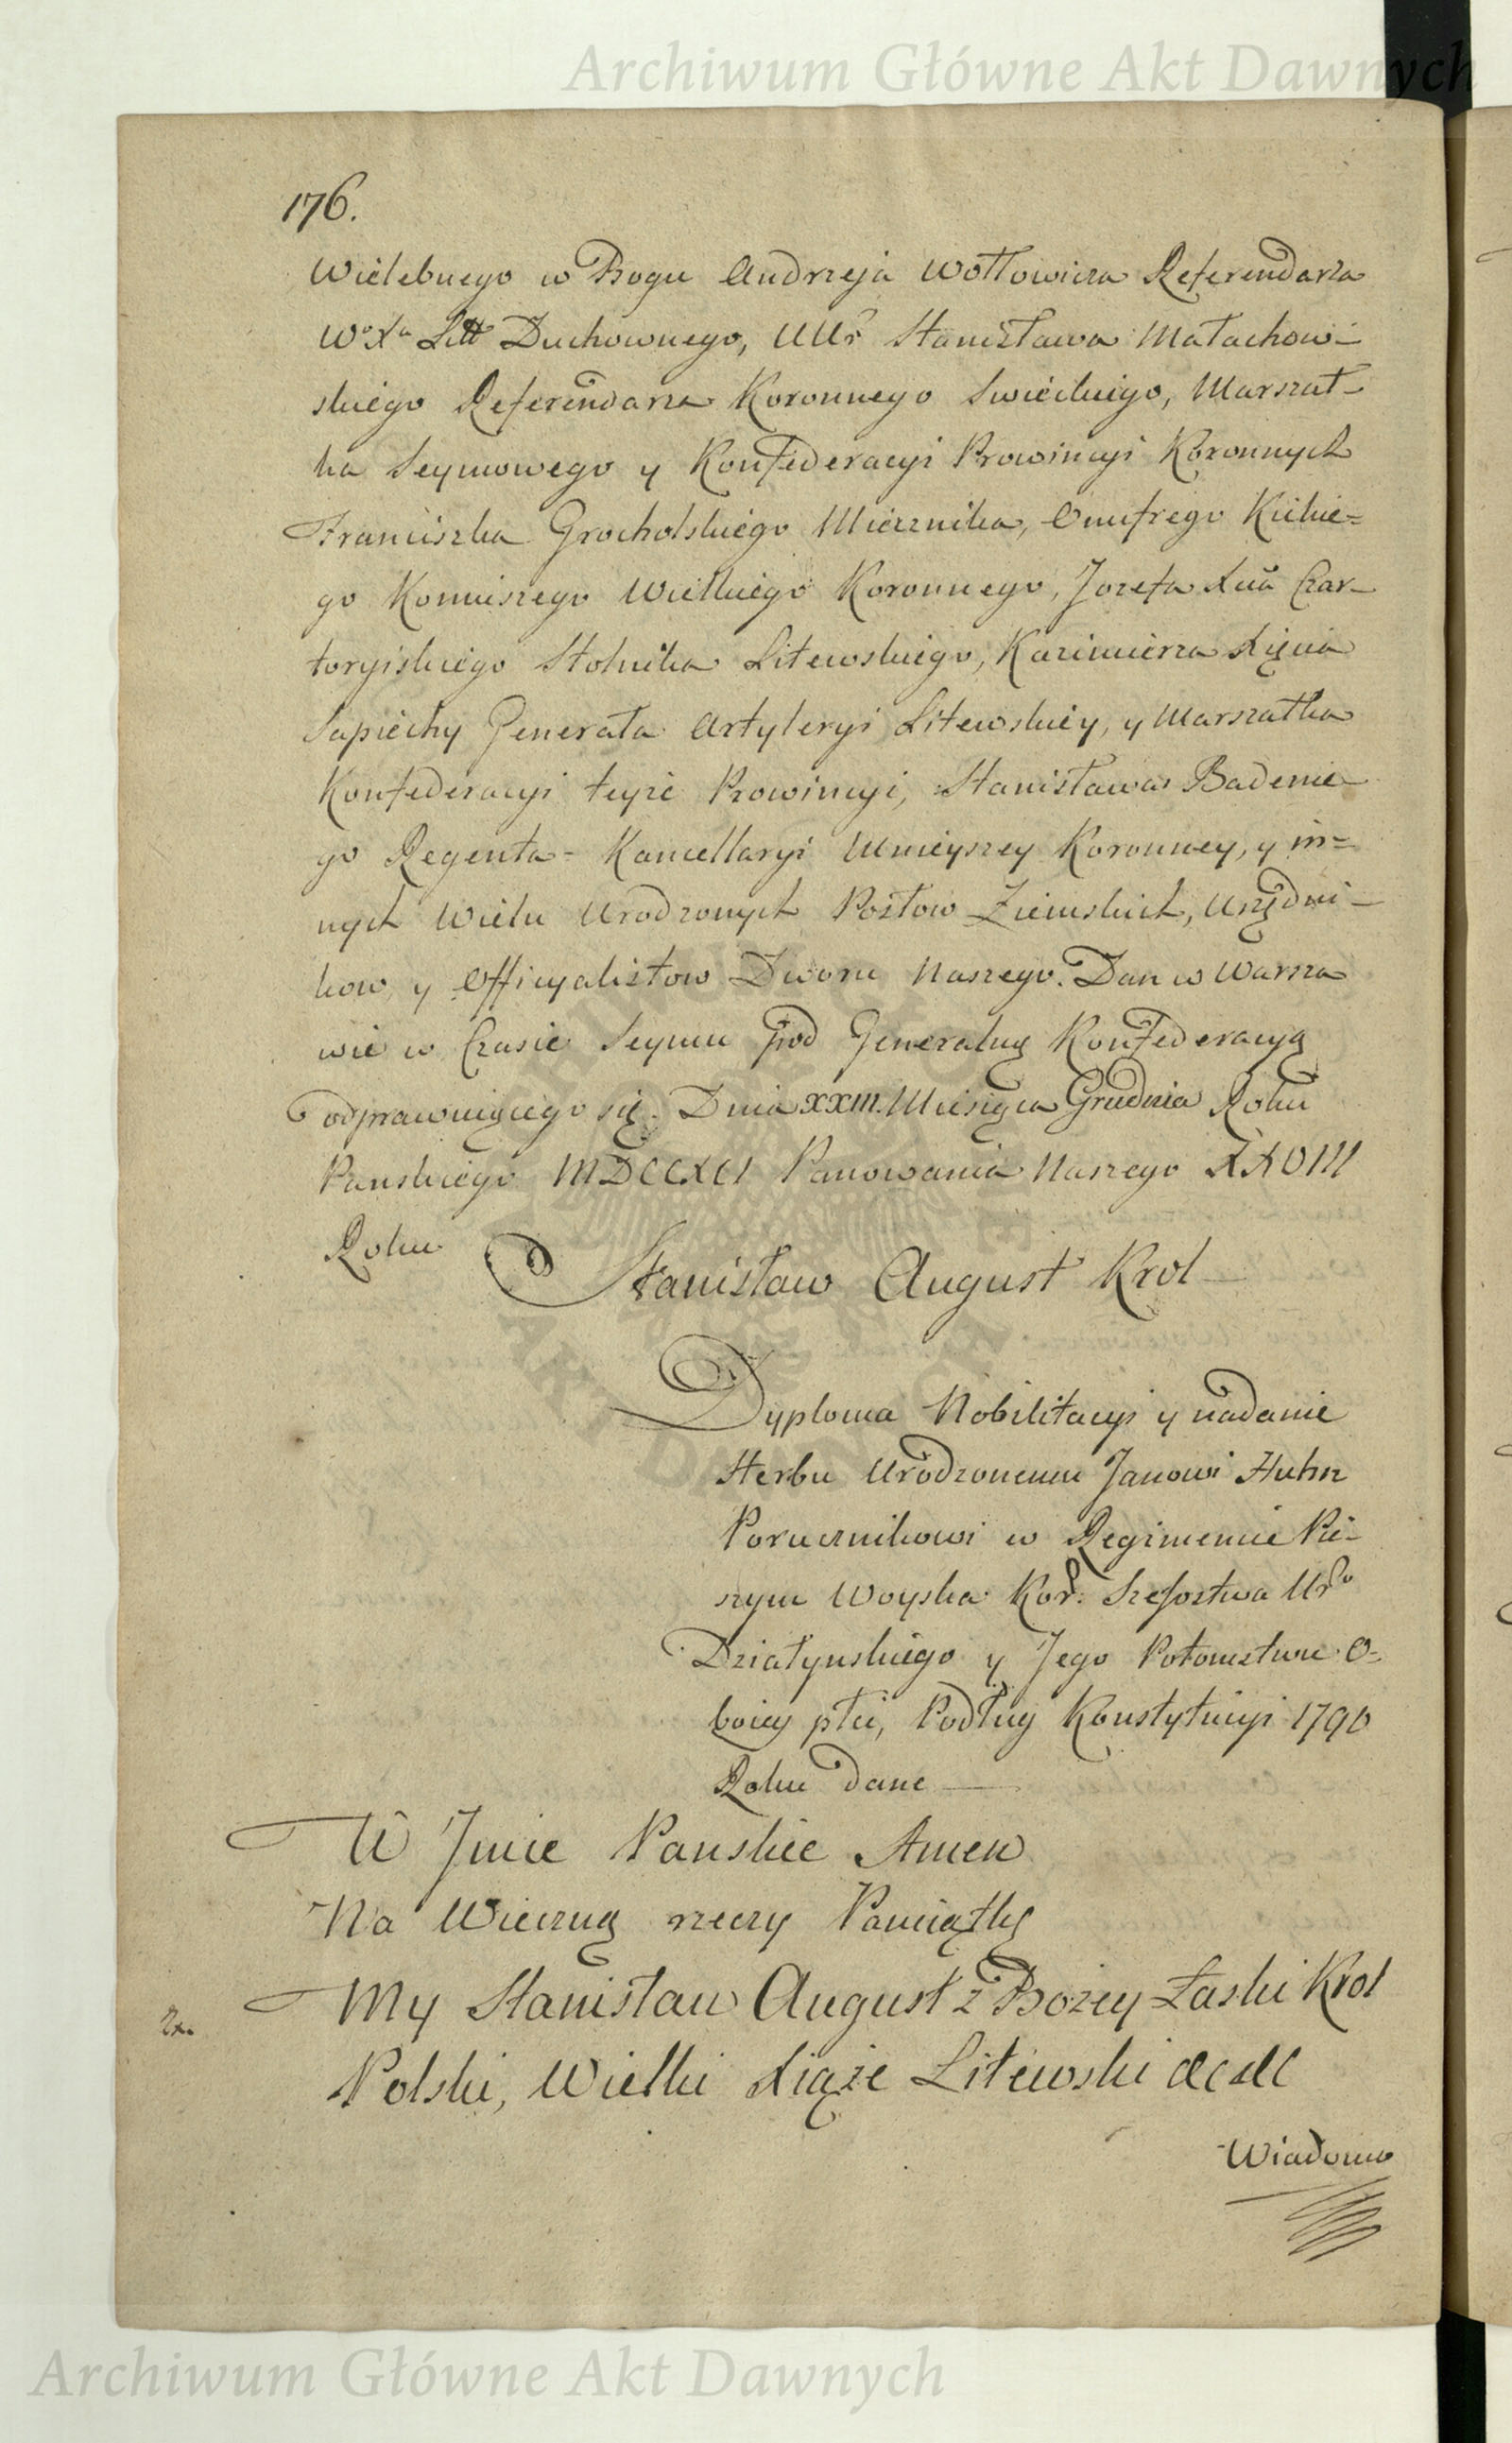 Archiwum Główne Akt Dawnych
176.
Wielebnego w Bogu Andrzeja Wołłowicza Referendarza
Wo Xa Litt Duchownego, UUr Stanisława Małachow-
skiego Referendarza Koronnego Swieckiego, Marszał-
ka Seymowego y Konfederacyi Prowincyi Koronnych
Franciszka Grocholskiego Miecznika, Onufrego Kickie=
go Koniuszego Wielkiego Koronnego, Jozefa Xcia Czar-
toryiskiego Stolnika Litewskiego, Kazimierza Xięcia
Sapiehy Generała Artyleryi Litewskiey, y Marszałka
Konfederacyi teyże Prowincyi, Stanisława Badenie
go Regenta- Kancellaryi Mnieyszey Koronney, y in=
nych Wielu Urodzonych Posłow Ziemskich, Urzędni-
kow, y Officyalistow Dworu Naszego. Dan w Warsza
wie w Czasie Seymu pod Generalną Konfederacyą
odprawuiącego się. Dnia XXIII. Miesiąca Grudnia Roku
Panskiego MDCCXCI Panowania Naszego XXVIII
Roku
Stanisław August Krol
Dyploma Nobilitacyi y nadanie
Herbu Urodzonemu Janowi Huhn
Porucznikowi w Regimencie Pie-
szym Woyska Kor: Szefostwa Uro
Działynskiego y Jego Potomstwu O-
boiey płci, Podług Konstytucyi 1790
Roku dane
W Jmie Panskie Amen
Na Wieczną rzeczy Pamiątkę
My Stanisław August z Bożey Łaski Krol
Polski, Wielki Xiąże Litewski &c &c
Wiadomo
ARCHIWUM GŁÓWNE AKT DAWNYCH
Archiwum Główne Akt Dawnych